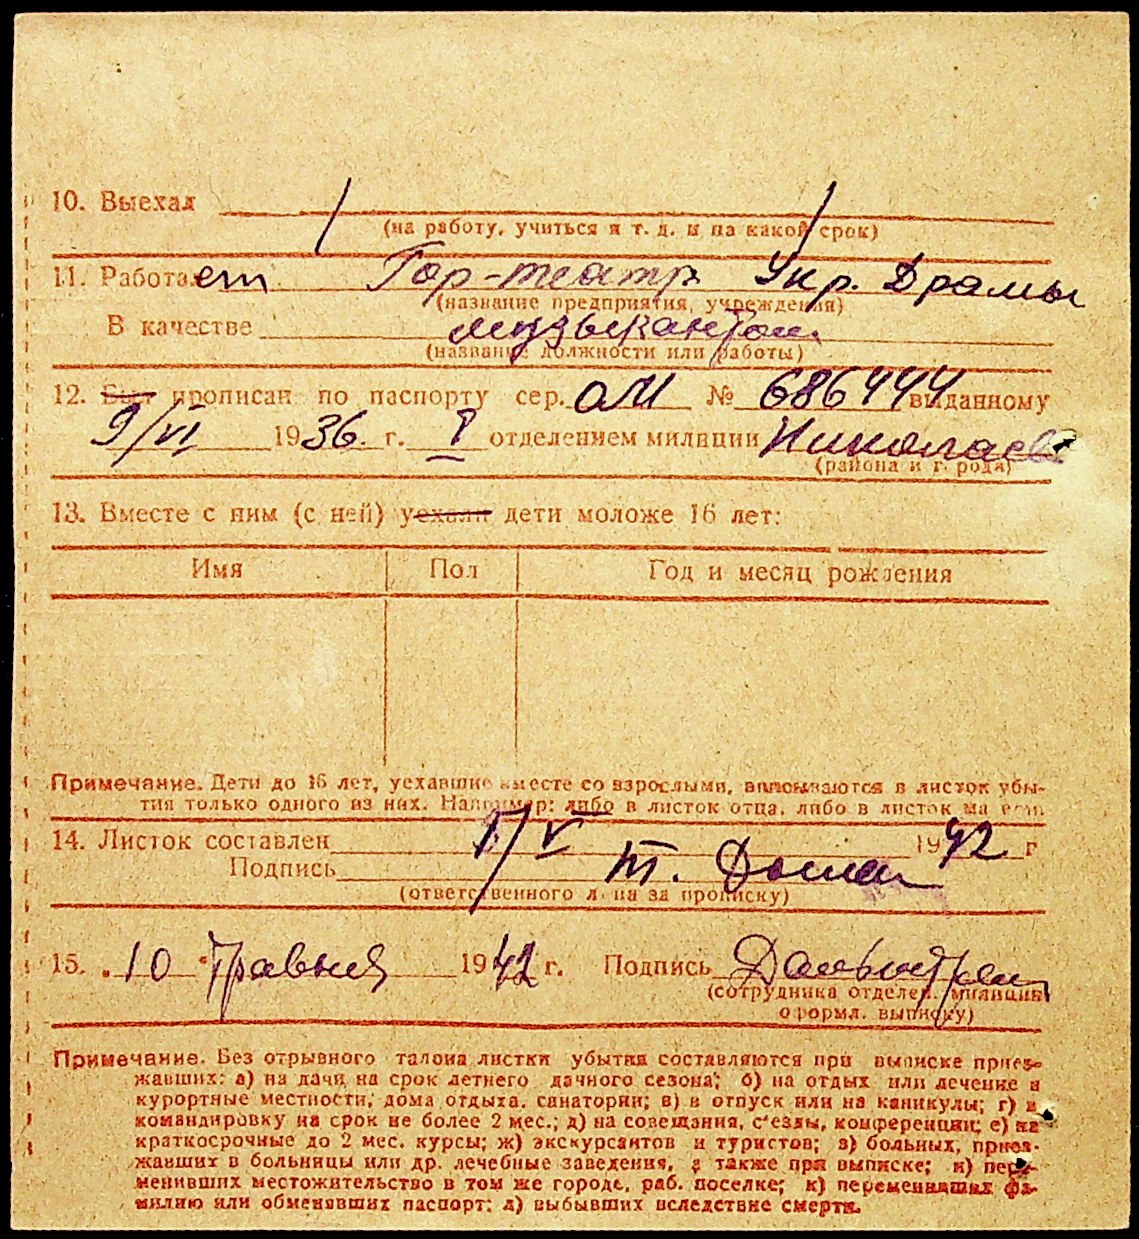 10. Выехал
(на работу, учиться и т. д. и на какой срок)
11. Работает Гор-театр Укр. Драмы
(название предприятия, учреждения)
В качестве музыкантом
(название должности или работы)
12. Был прописан по паспорту сер. ОМ № 686444 выданному
9/VI 1936 г. I отделением милиции Николаев
(района и города)
13. Вместе с ним (с ней) уехали дети моложе 16 лет:
Имя Пол Год и месяц рождения
Примечание. Дети до 16 лет, уехавшие вместе со взрослыми, вписываются в листок убы-
тия только одного из них. Например: либо в листок отца, либо в листок матери.
14. Листок составлен /V 1942 г
Подпись
(ответственного лица за прописку)
15. „10“ Травня 1942 г. Подпись
(сотрудника отделен. милиции
оформл. выписку)
Примечание. Без отрывного талона листки убытия составляются при выписке приез-
жавших: а) на дачи на срок летнего дачного сезона; б) на отдых или лечение в
курортные местности, дома отдыха, санатории; в) в отпуск или на каникулы; г) в
командировку на срок не более 2 мес.; д) на совещания, с'езды, конференции; е) на
краткосрочные до 2 мес. курсы; ж) экскурсантов и туристов; з) больных, приез-
жавших в больницы или др. лечебные заведения, а также при выписке; и) пере-
менивших местожительство в том же городе, раб. поселке; к) переменивших фа-
милию или обменявших паспорт; л) выбывших вследствие смерти.